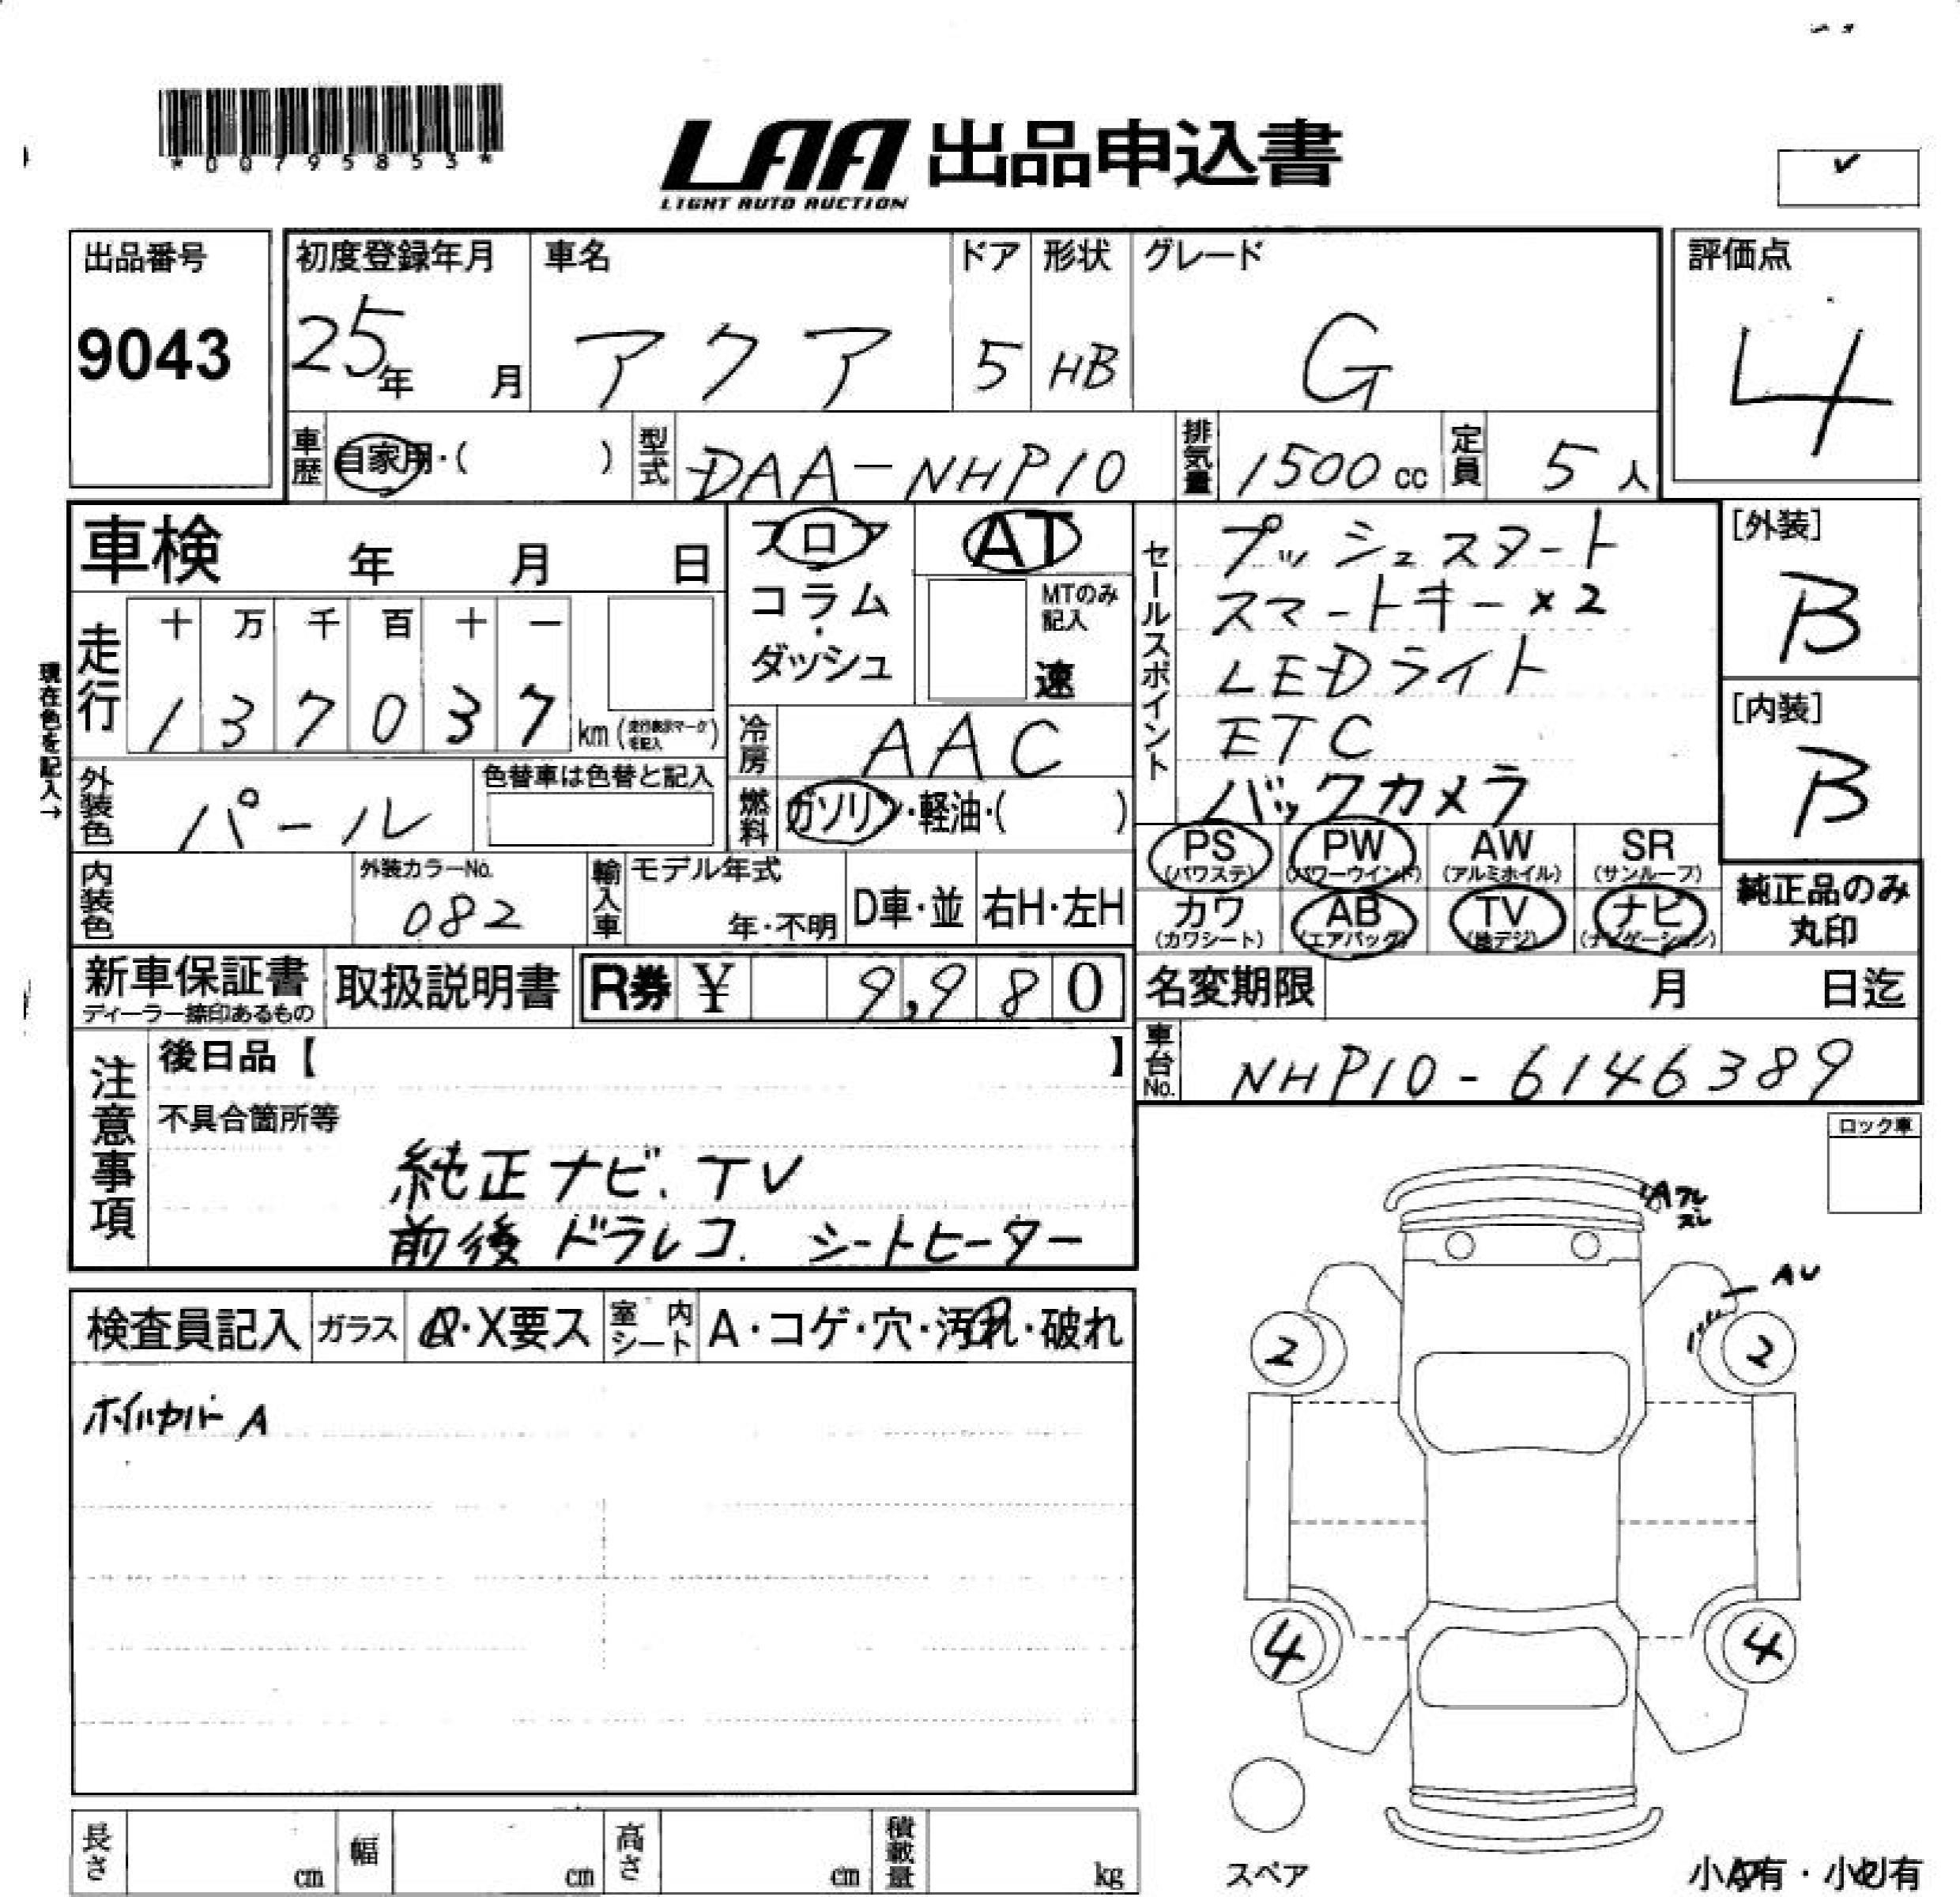 *00795853*
LAA 出品申込書
LIGHT AUTO AUCTION
出品番号
9043
初度登録年月 車名 ドア 形状 グレード
25年 月 アクア 5 HB G
評価点
4
車歴 自家用・( ) 型式 DAA-NHP10 排気量 1500cc 定員 5人
車検 年 月 日
フロア AT
コラム・ダッシュ
MTのみ記入
速
セールスポイント
プッシュスタート
スマートキー×2
LEDライト
ETC
バックカメラ
[外装]
B
[内装]
B
現在色を記入→
走行 十 万 千 百 十 一
1 3 7 0 3 7 km
冷房 AAC
外装色 パール 色替車は色替と記入
燃料 ガソリン・軽油・( )
PS (パワステ) PW (パワーウインド) AW (アルミホイル) SR (サンルーフ)
カワ (カワシート) AB (エアバッグ) TV (地デジ) ナビ (ナビゲーション)
純正品のみ
丸印
内装色 外装カラーNo. 082 輸入車 モデル年式 年・不明 D車・並 右H・左H
新車保証書
ディーラー捺印あるもの
取扱説明書 R券 ¥ 9,980
名変期限 月 日迄
車台No. NHP10-6146389
注意事項
後日品【 】
不具合箇所等
純正ナビ、TV
前後ドラレコ. シートヒーター
ロック車
Aフレ
AU
検査員記入 ガラス ・X要ス 室内シート A・コゲ・穴・汚れ・破れ
ホイルカバー A
2 2
4 4
スペア
長さ cm 幅 cm 高さ cm 積載量 kg
小A有・小U有